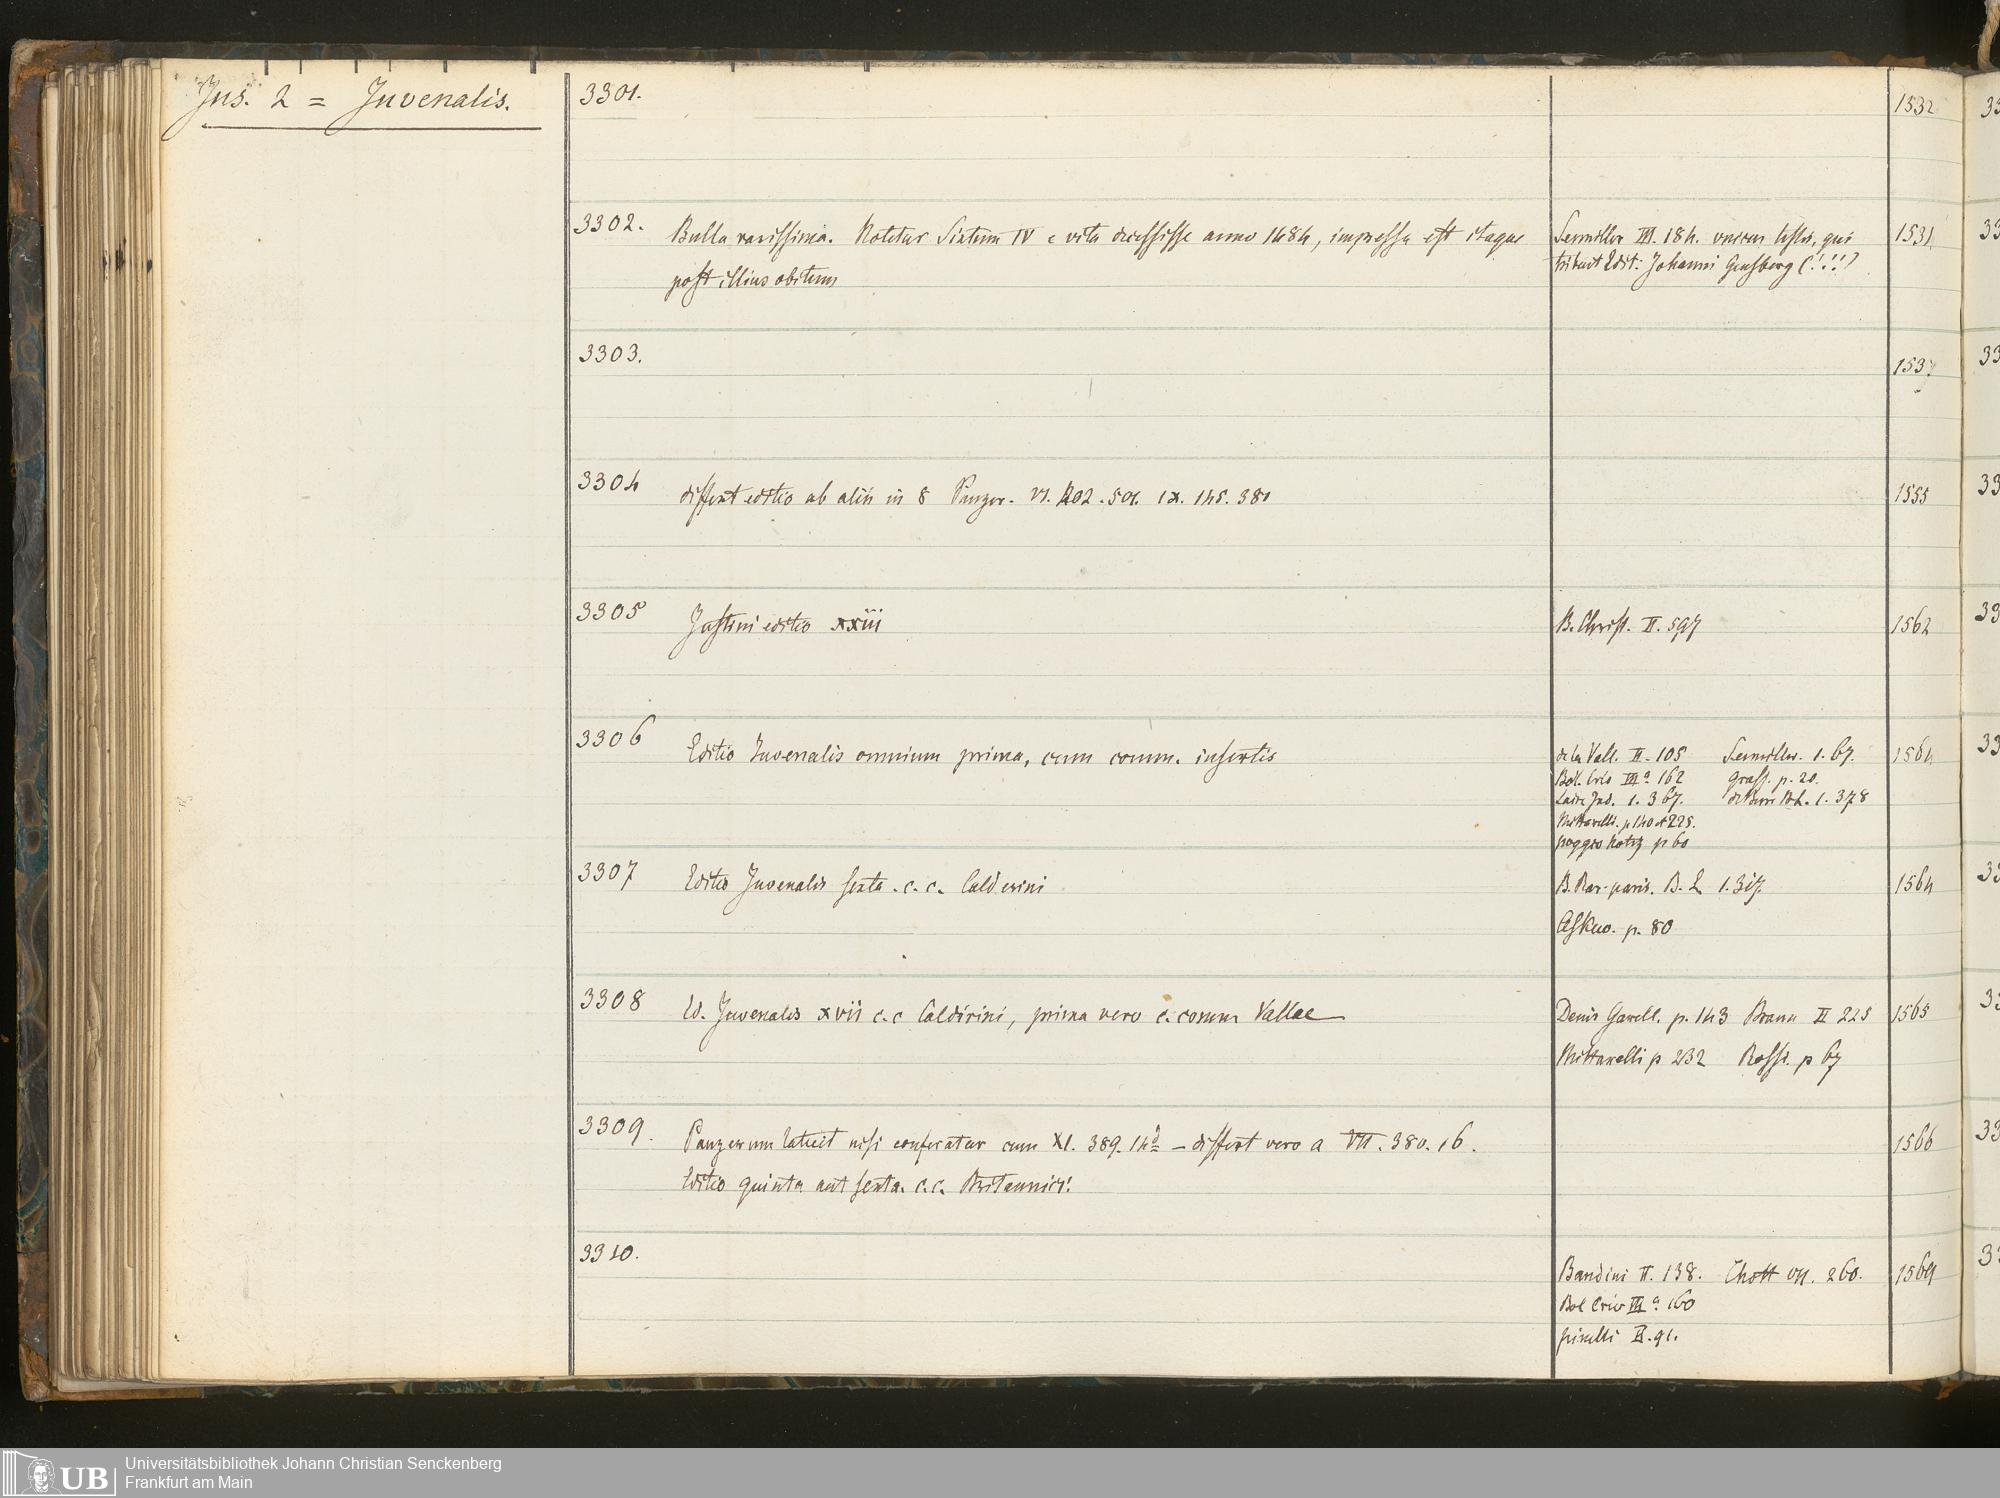 Jus. 2 = Juvenalis.
3301.
1532
3302.
Bulla rarissima. Notetur Sixtum IV e vita decessisse anno 1484, impressa est itaque
post illius obitum
Seemiller III. 184. unicus testis, qui
tribuit Edit: Johanni Gensberg (!!!)
1531
3303.
153
3304
differt editio ab aliis in 8 Panzer. VI. 202. 501. IX. 145. 380
1555
3305
Justini editio xxiii
B. Christ. II. 597
1562
3306
Editio Juvenalis omnium prima, cum comm. insertis
de la Vall. II. 105 Seemiller. 1. 67.
Bol. Crev III a. 162 Grass. p. 20.
Laire Ind. 1. 367. de Bure B.L. 1. 378
Mittarelli. p 140 et 225.
poggeo Notiz p 60
1564
3307
Editio Juvenalis sexta. c. c. Calderini
B. Rar. paris. B. L 1. 317.
Askew. p. 80
1564
3308
Ed. Juvenalis xvii c. c Calderini, prima vero c. comm Vallae
Denis Garell. p. 143 Braun II 225
Mittarelli p 232 Rossi. p 67
1565
3309.
Panzerum latuit nisi conferatur cum XI. 389. 14d — differt vero a VII. 380. 16.
Editio quinta aut sexta. c. c. Britannici!
1566
3310.
Bandini II. 138. Thott VII. 260.
Bol Crev III a. 160
pinelli II. 91.
1569
Universitätsbibliothek Johann Christian Senckenberg
Frankfurt am Main
UB